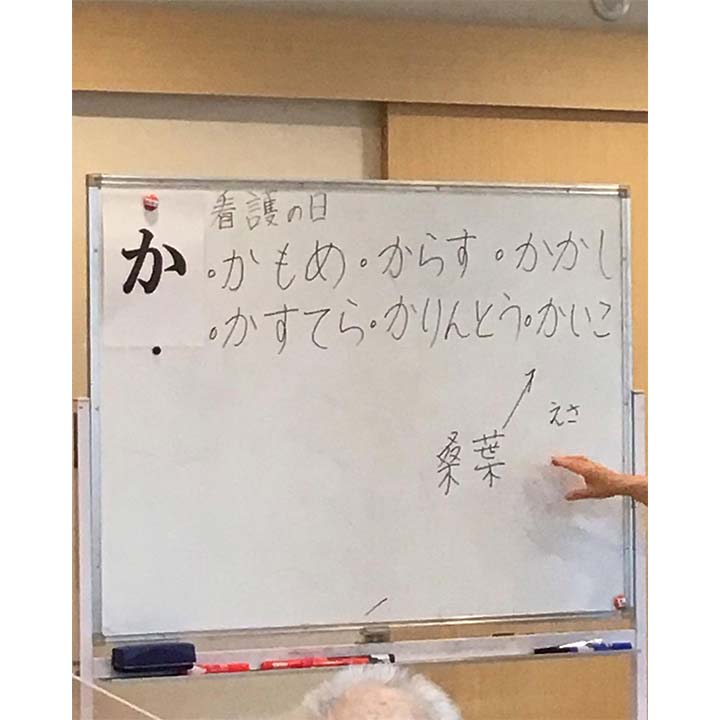 か
看護の日
・かもめ・からす・かかし
・かすてら・かりんとう・かいこ
えさ
桑葉